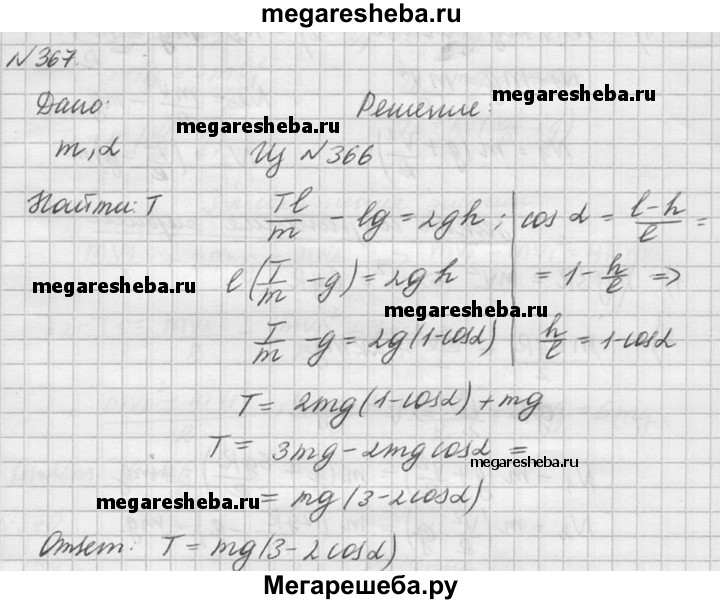 megaresheba.ru
№367.
Дано: Решение:
megaresheba.ru
megaresheba.ru
m, α Из №366
Найти: T Tl/m - lg = 2gh; cos α = (l-h)/l =
megaresheba.ru l(T/m - g) = 2gh = 1 - h/l =>
megaresheba.ru
T/m - g = 2g(1-cosα) h/l = 1-cosα
T = 2mg(1-cosα)+mg
T = 3mg-2mg cosα =
megaresheba.ru
megaresheba.ru = mg(3-2cosα)
Ответ: T = mg(3-2cosα)
Мегарешеба.ру